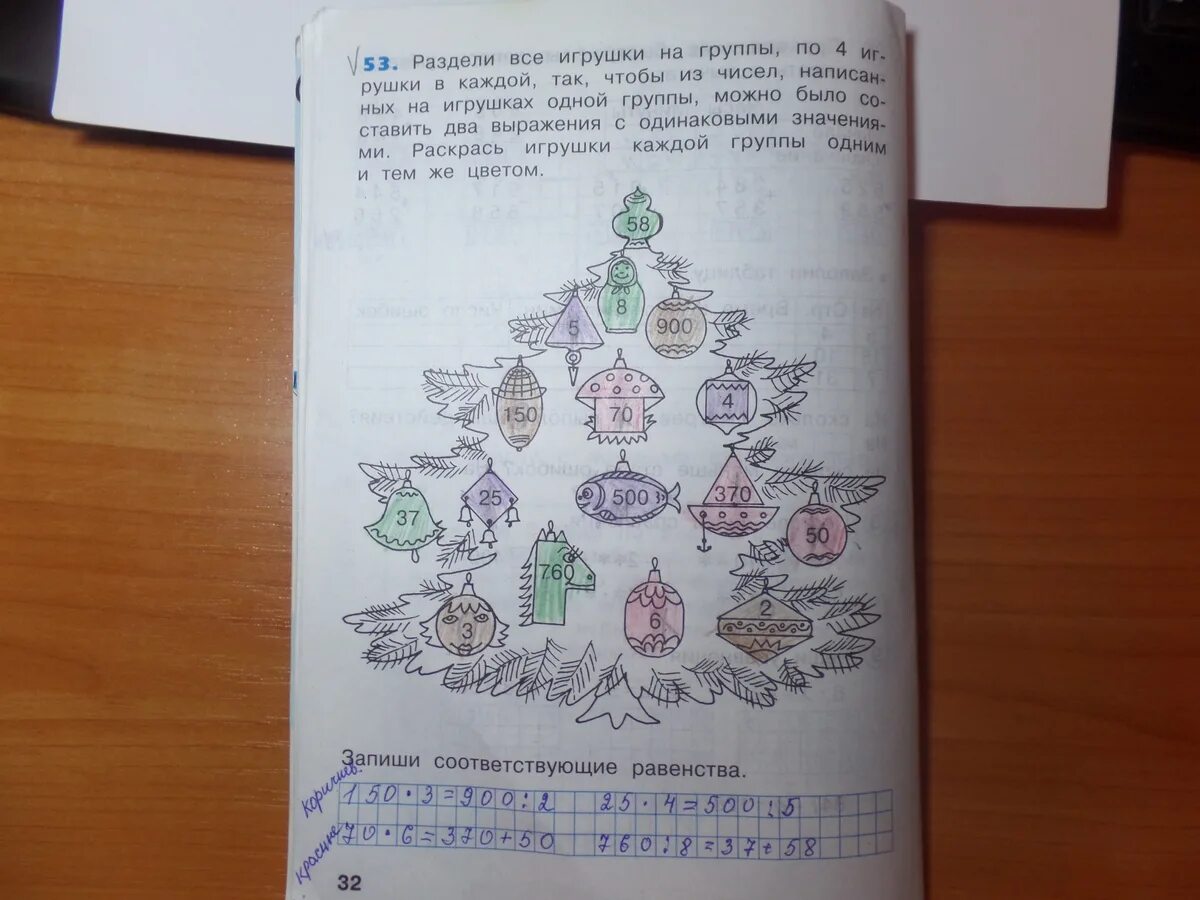 53. Раздели все игрушки на группы, по 4 иг-
рушки в каждой, так, чтобы из чисел, написан-
ных на игрушках одной группы, можно было со-
ставить два выражения с одинаковыми значения-
ми. Раскрась игрушки каждой группы одним
и тем же цветом.
58
8
5
900
150
70
4
37
25
500
370
50
760
3
6
2
Запиши соответствующие равенства.
коричнев.
150·3=900:2 25·4=500:5
красные
70·6=370+50 760:8=37+58
32